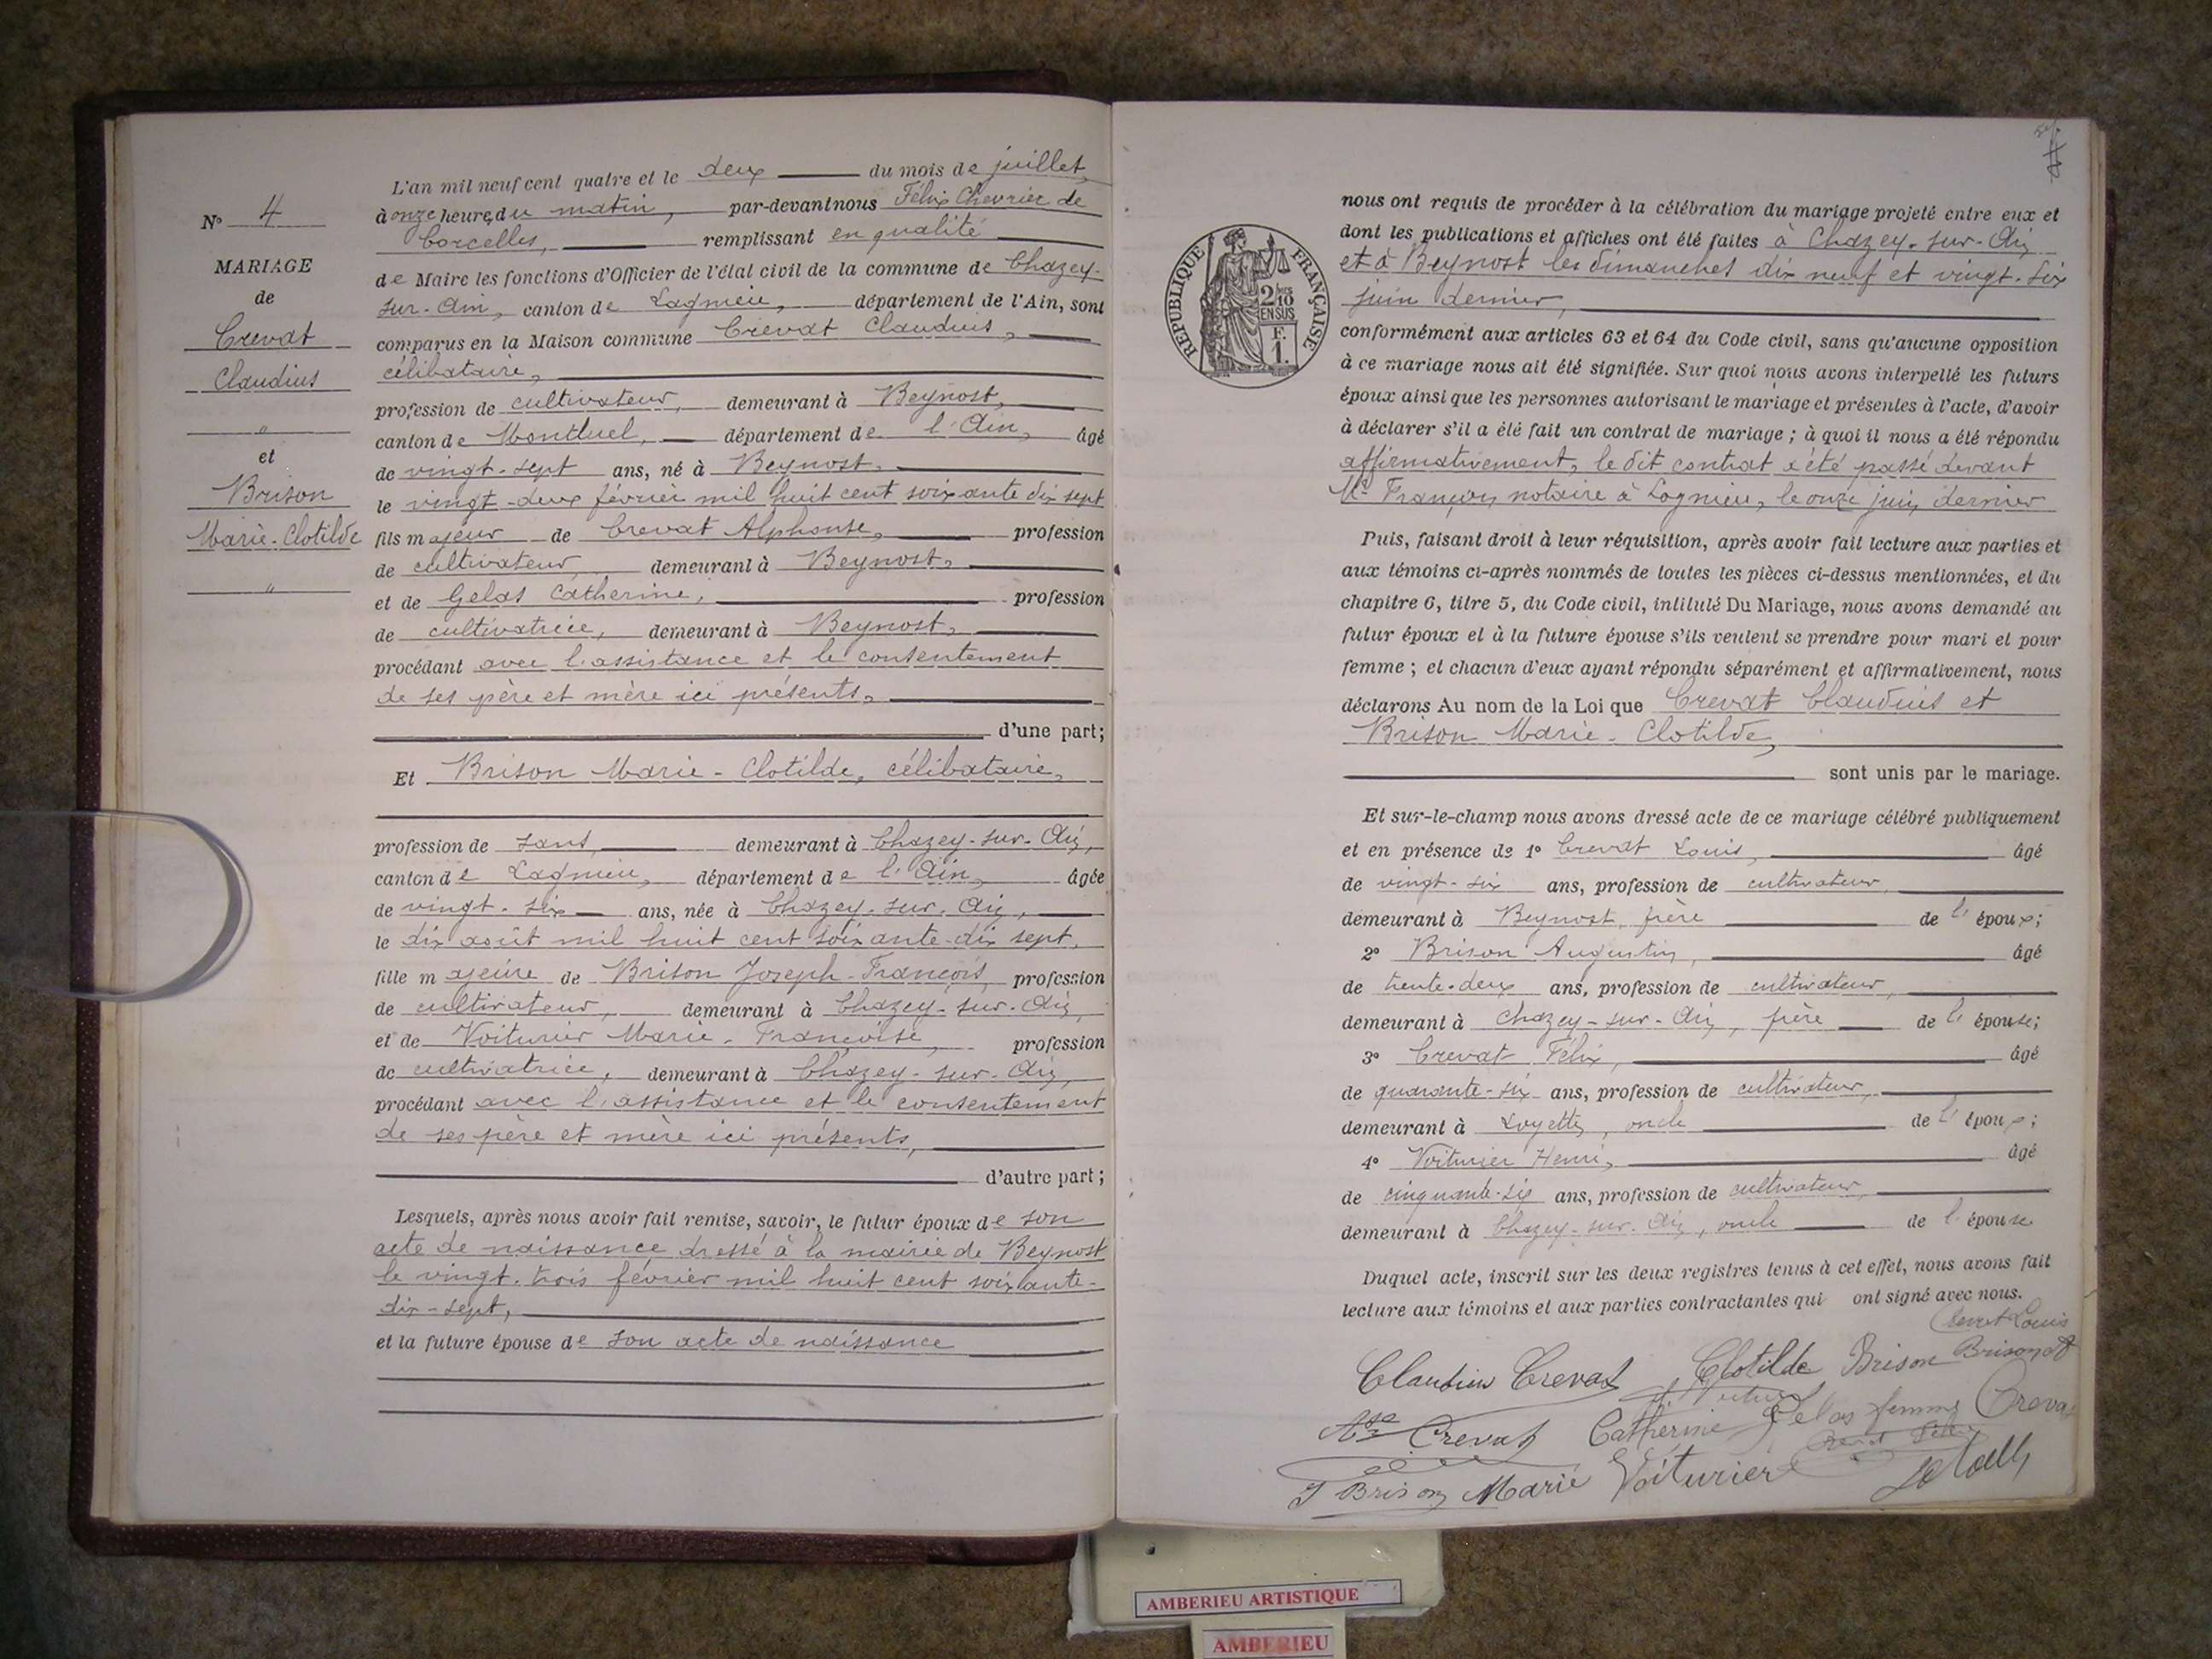 N° 4
MARIAGE
de
Crevat
Claudius
"
et
Brison
Marie-Clotilde
"
L'an mil neuf cent quatre et le deux du mois de juillet,
à onze heures du matin, par-devant nous Félix Chevrier de
Corcelles, remplissant en qualité
de Maire les fonctions d'Officier de l'état civil de la commune de Chazey-
sur-Ain, canton de Lagnieu, département de l'Ain, sont
comparus en la Maison commune Crevat Claudius,
célibataire,
profession de cultivateur, demeurant à Beynost,
canton de Montluel, département de l'Ain, âgé
de vingt-sept ans, né à Beynost,
le vingt-deux février mil huit cent soixante dix sept
fils majeur de Crevat Alphonse, profession
de cultivateur, demeurant à Beynost,
et de Gelas Catherine, profession
de cultivatrice, demeurant à Beynost,
procédant avec l'assistance et le consentement
de ses père et mère ici présents,
d'une part;
Et Brison Marie-Clotilde, célibataire,
profession de sans, demeurant à Chazey-sur-Ain,
canton de Lagnieu, département de l'Ain, âgée
de vingt-six ans, née à Chazey-sur-Ain,
le dix août mil huit cent soixante-dix sept,
fille majeure de Brison Joseph-François, profession
de cultivateur, demeurant à Chazey-sur-Ain,
et de Voiturier Marie-Françoise, profession
de cultivatrice, demeurant à Chazey-sur-Ain,
procédant avec l'assistance et le consentement
de ses père et mère ici présents,
d'autre part;
Lesquels, après nous avoir fait remise, savoir, le futur époux de son
acte de naissance dressé à la mairie de Beynost
le vingt-trois février mil huit cent soixante-
dix-sept,
et la future épouse de son acte de naissance
RÉPUBLIQUE FRANÇAISE
2/10
EN SUS
F.
1.
nous ont requis de procéder à la célébration du mariage projeté entre eux et
dont les publications et affiches ont été faites à Chazey-sur-Ain
et à Beynost les dimanches dix neuf et vingt-six
juin dernier,
conformément aux articles 63 et 64 du Code civil, sans qu'aucune opposition
à ce mariage nous ait été signifiée. Sur quoi nous avons interpellé les futurs
époux ainsi que les personnes autorisant le mariage et présentes à l'acte, d'avoir
à déclarer s'il a été fait un contrat de mariage ; à quoi il nous a été répondu
affirmativement, le dit contrat a été passé devant
Me François notaire à Lagnieu, le onze juin dernier
Puis, faisant droit à leur réquisition, après avoir fait lecture aux parties et
aux témoins ci-après nommés de toutes les pièces ci-dessus mentionnées, et du
chapitre 6, titre 5, du Code civil, intitulé Du Mariage, nous avons demandé au
futur époux et à la future épouse s'ils veulent se prendre pour mari et pour
femme ; et chacun d'eux ayant répondu séparément et affirmativement, nous
déclarons Au nom de la Loi que Crevat Claudius et
Brison Marie-Clotilde,
sont unis par le mariage.
Et sur-le-champ nous avons dressé acte de ce mariage célébré publiquement
et en présence de 1° Crevat Louis, âgé
de vingt-six ans, profession de cultivateur,
demeurant à Beynost, frère de l'époux;
2° Brison Augustin, âgé
de trente-deux ans, profession de cultivateur,
demeurant à Chazey-sur-Ain, frère de l'épouse;
3° Crevat Félix, âgé
de quarante-six ans, profession de cultivateur,
demeurant à Loyettes, oncle de l'époux;
4° Voiturier Henri, âgé
de cinquante-six ans, profession de cultivateur,
demeurant à Chazey-sur-Ain, oncle de l'épouse
Duquel acte, inscrit sur les deux registres tenus à cet effet, nous avons fait
lecture aux témoins et aux parties contractantes qui ont signé avec nous.
Crevat Louis
Claudius Crevat Clotilde Brison Brison
Ase Crevat Catherine Gelas femme Crevat
Crevat Félix
J Brison Marie Voiturier
AMBERIEU ARTISTIQUE
AMBERIEU